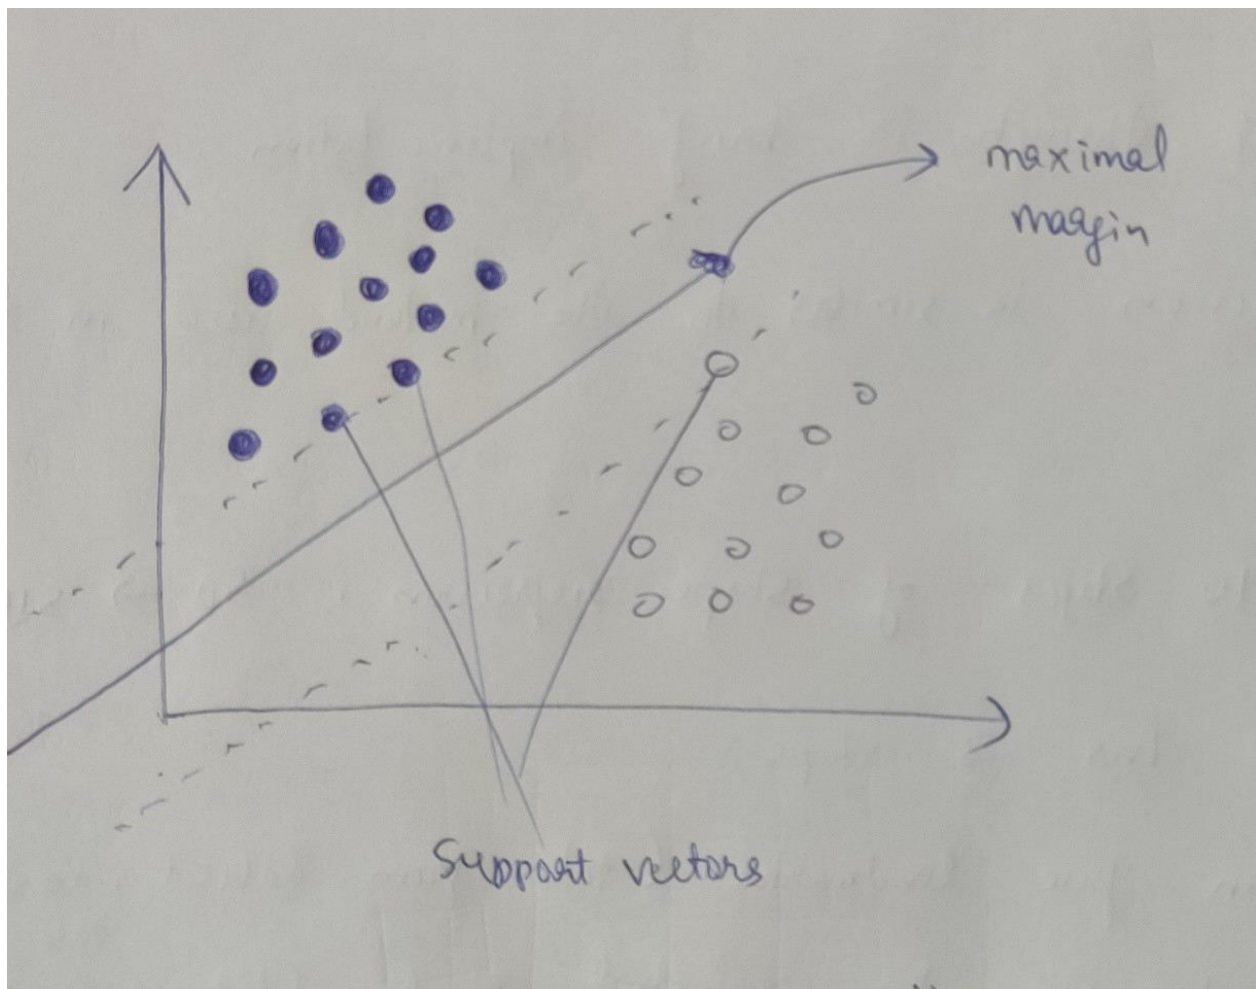 maximal
margin
Support vectors